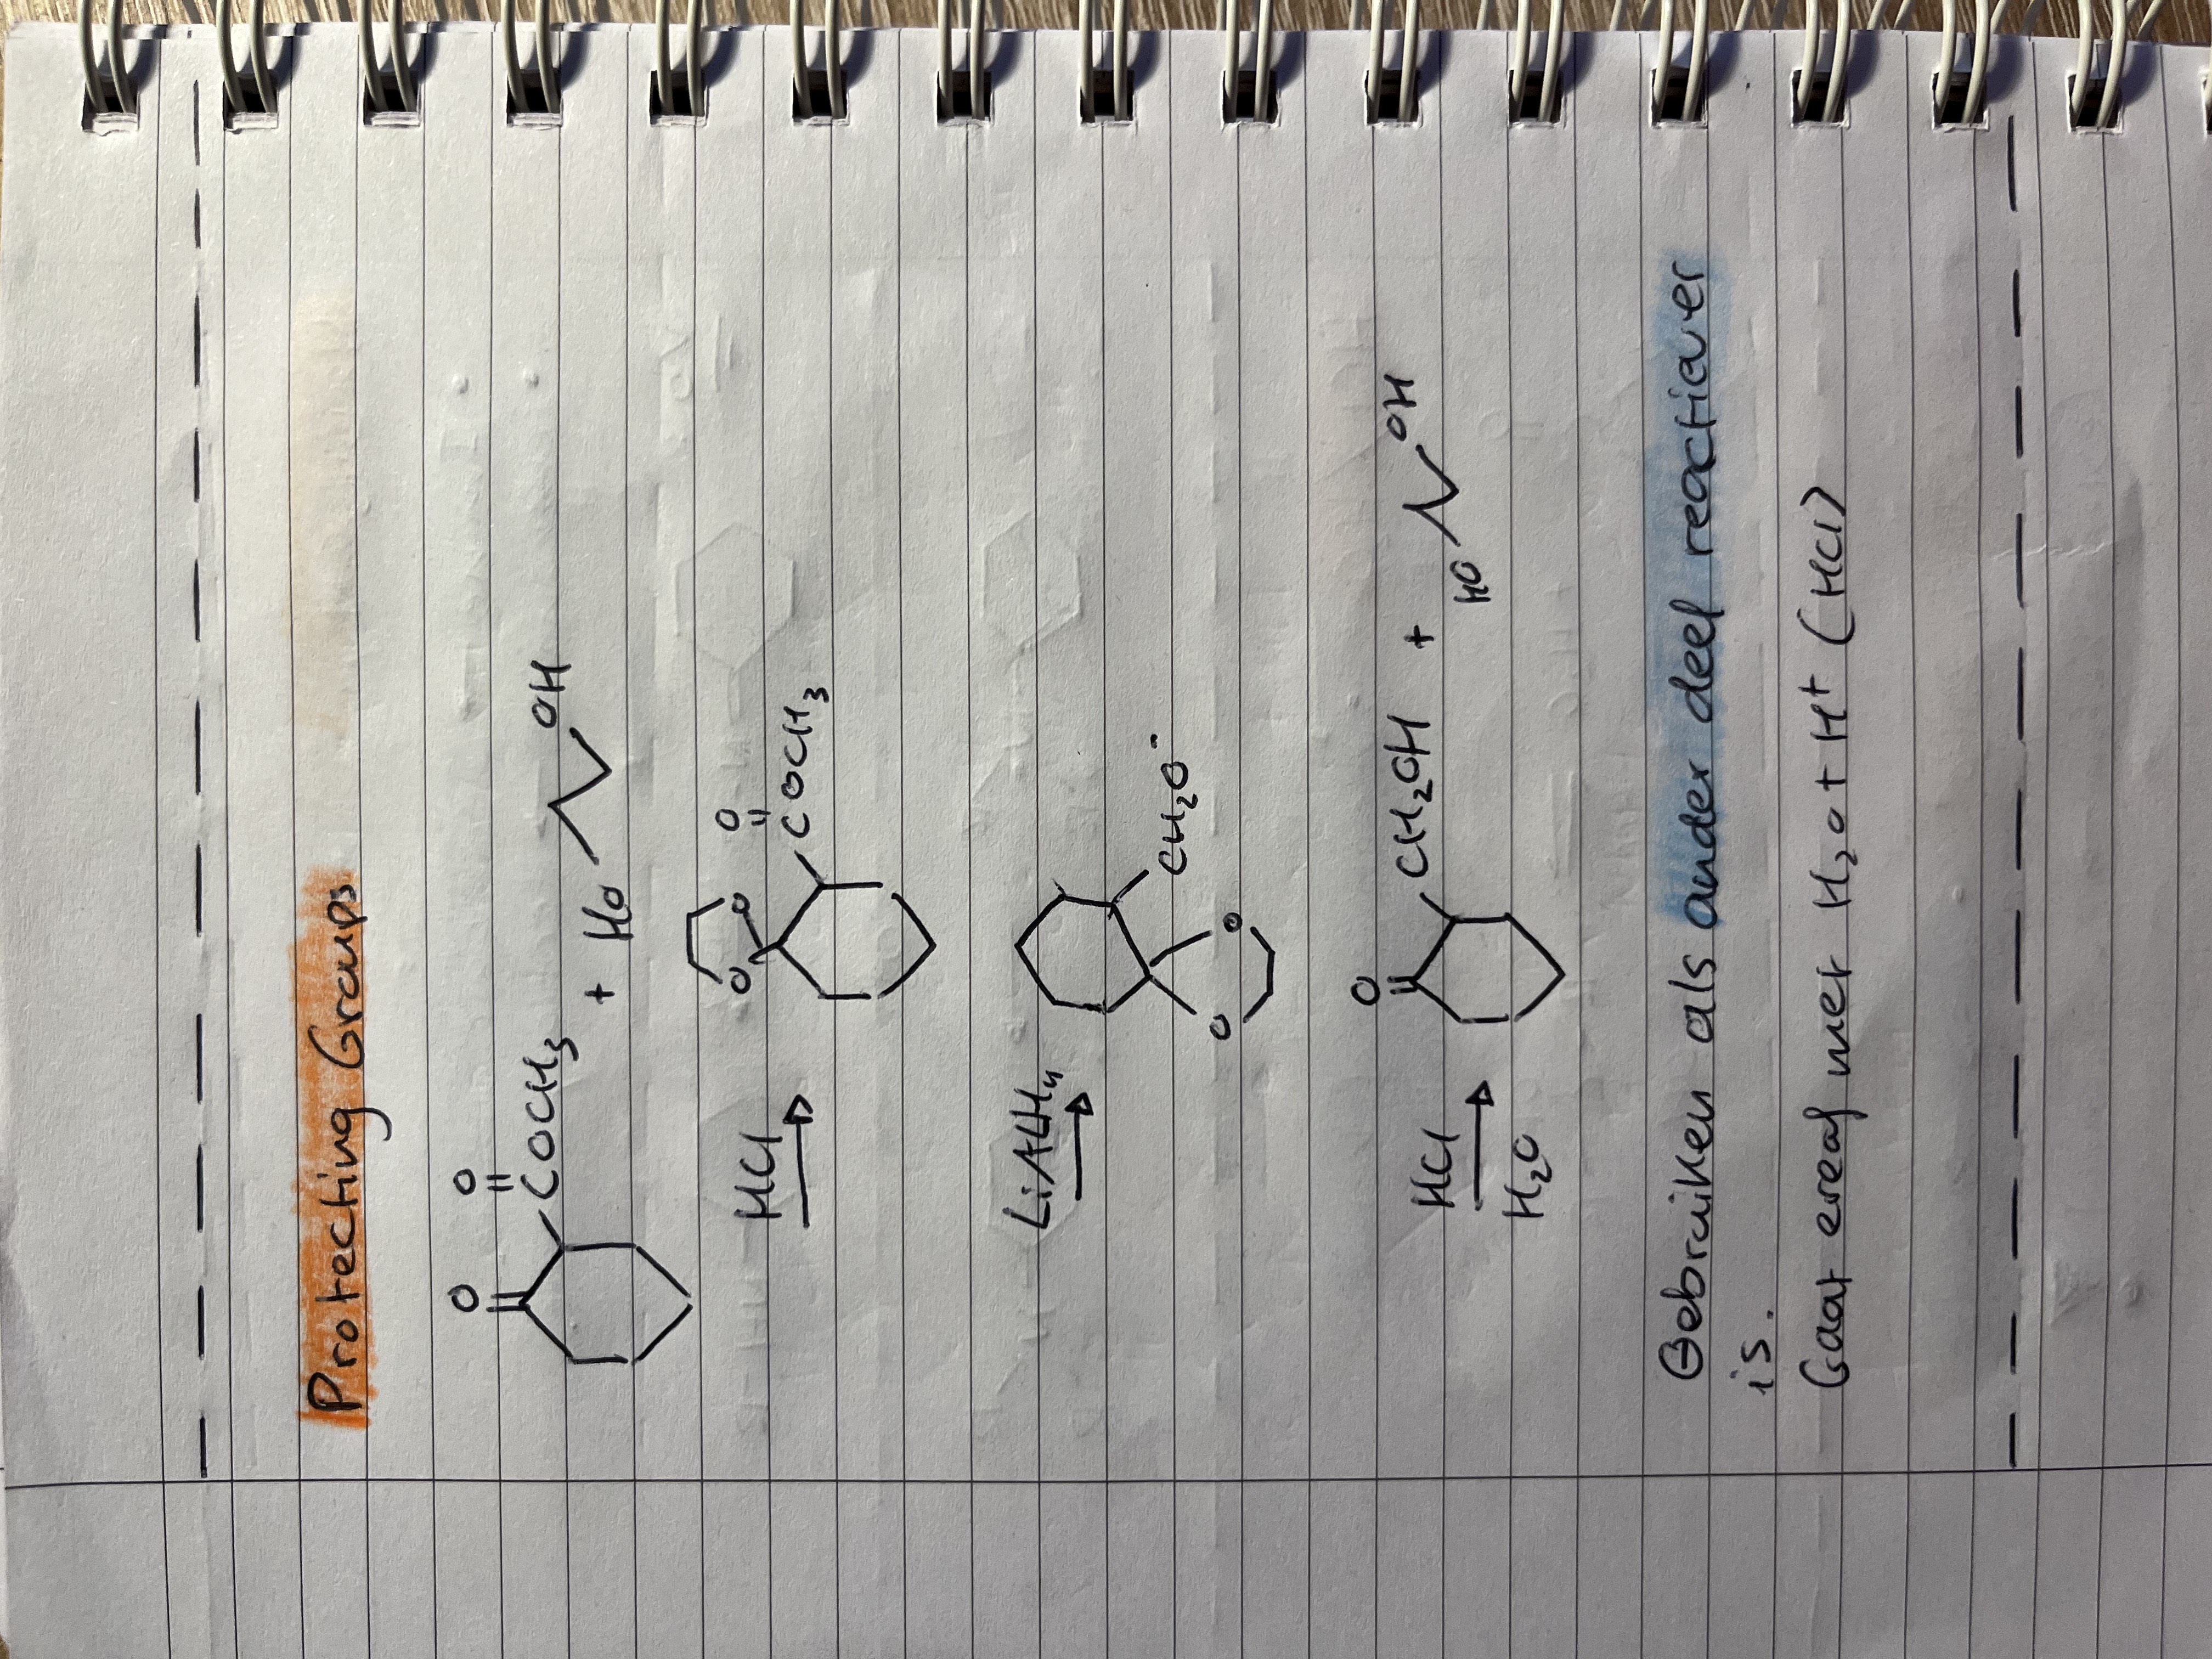 Protecting Groups
O O
COCH₃ + HO OH
O O O
HCl COCH₃
LiALH₄
CH₂O⁻
O O
O
HCl CH₂OH + HO OH
H₂O
Gebruiken als ander deel reactiever
is.
Gaat eraf met H₂O + H⁺ (HCl)